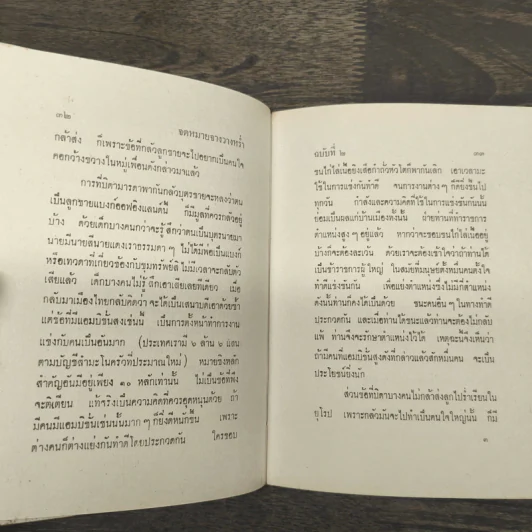 ๓๒
จดหมายจางวางหร่ำ
กล้าส่ง ก็เพราะข้อที่กลัวลูกชายจะไปอยากเป็นคนใจ
คอกว้างขวางในหมู่เพื่อนดังกล่าวมาแล้ว
การที่บิดามารดาพากันกลัวบุตรชายจะหลงว่าตน
เป็นลูกชายแบงก์ออฟอิงแลนด์นี้ ก็มีมูลที่ควรกลัวอยู่
บ้าง ด้วยเด็กบางคนกว่าจะรู้สึกว่าตนเป็นบุตรนายมา
นายมีนายสีนายแดงเรายธรรมดา ๆ ไม่ได้มีพ่อเป็นแบงก์
หรือเทวดาที่เกี่ยวข้องกับขุมทรัพย์ลิ ไม่มีเวลาจะกลับตัว
เสียแล้ว เด็กบางคนไม่รู้สึกเอาเสียเลยทีเดียว เมื่อ
กลับมาเมืองไทยกลับคิดว่า จะได้เป็นเสนาบดีเอาด้วยซ้ำ
แต่ข้อที่มีแอมบิชั่นส่งเช่นนี้ เป็นการตั้งหน้าทำการงาน
แข่งกับคนเป็นอันมาก (ประเทศเรามี ๖ ล้าน ๖ แสน
ตามบัญชีสำมะโนครัวที่ประมาณใหม่) หมายชิงหลัก
สำคัญอันมีอยู่เพียง ๑๐ หลักเท่านั้น ไม่เป็นข้อที่พึง
จะติเตียน แท้จริงเป็นความคิดที่ควรอุดหนุนด้วย ถ้า
มีคนมีแอมบิชั่นเช่นนั้นมาก ๆ ก็ยิ่งดีหนักขึ้น เพราะ
ต่างคนก็ต่างแย่งกันทำดีโดยประกวดกัน ใครชอบ
ฉบับที่ ๒
๓๓
ชนไก่ใส่เนื้อยิงเสือกำถั่วตัวโตกี่พากันเลิก เอาเวลามะ
ใช้ในการแข่งกันทำดี จนการงานต่าง ๆ ก็ดียิ่งขึ้นไป
ทุกวัน กำลังและความคิดที่ใช้ในการแข่งขันกันนั้น
ย้อมเป็นผลแก่บ้านเมืองทั้งนั้น ฝ่ายท่านที่ทำราชการ
ตำแหน่งสูง ๆ อยู่แล้ว หากว่าจะชอบชนไก่ใส่เนื้ออยู่
บ้างก็จะต้องละเว้น ด้วยเราจะต้องเข้าใจว่าถ้าท่านได้
เป็นข้าราชการผู้ใหญ่ ในสมัยที่มนุษย์ตั้งหมื่นคนตั้งใจ
ทำดีแข่งขันกัน เพื่อแย่งตำแหน่งซึ่งไม่มีกี่ตำแหน่ง
ดังนั้นท่านก็คงได้เป็นด้วย ชนะคนอื่น ๆ ในทางทำดี
ประกวดกัน และเมื่อท่านได้ชนะแล้วท่านจะต้องไม่กลับ
แพ้ ท่านจึงจะรักษาตำแหน่งไว้ได้ เหตุฉะนั้นจึงเห็นว่า
ถ้ามีคนที่แอมบิชั่นสูงดังที่กล่าวแล้วสักหมื่นคน จะเป็น
ประโยชน์ยิ่งนัก
ส่วนข้อที่บิดาบางคนไม่กล้าส่งลูกไปร่ำเรียนใน
ยุโรป เพราะกลัวมันจะไปทำเป็นคนใจใหญ่นั้น ก็มี
๓